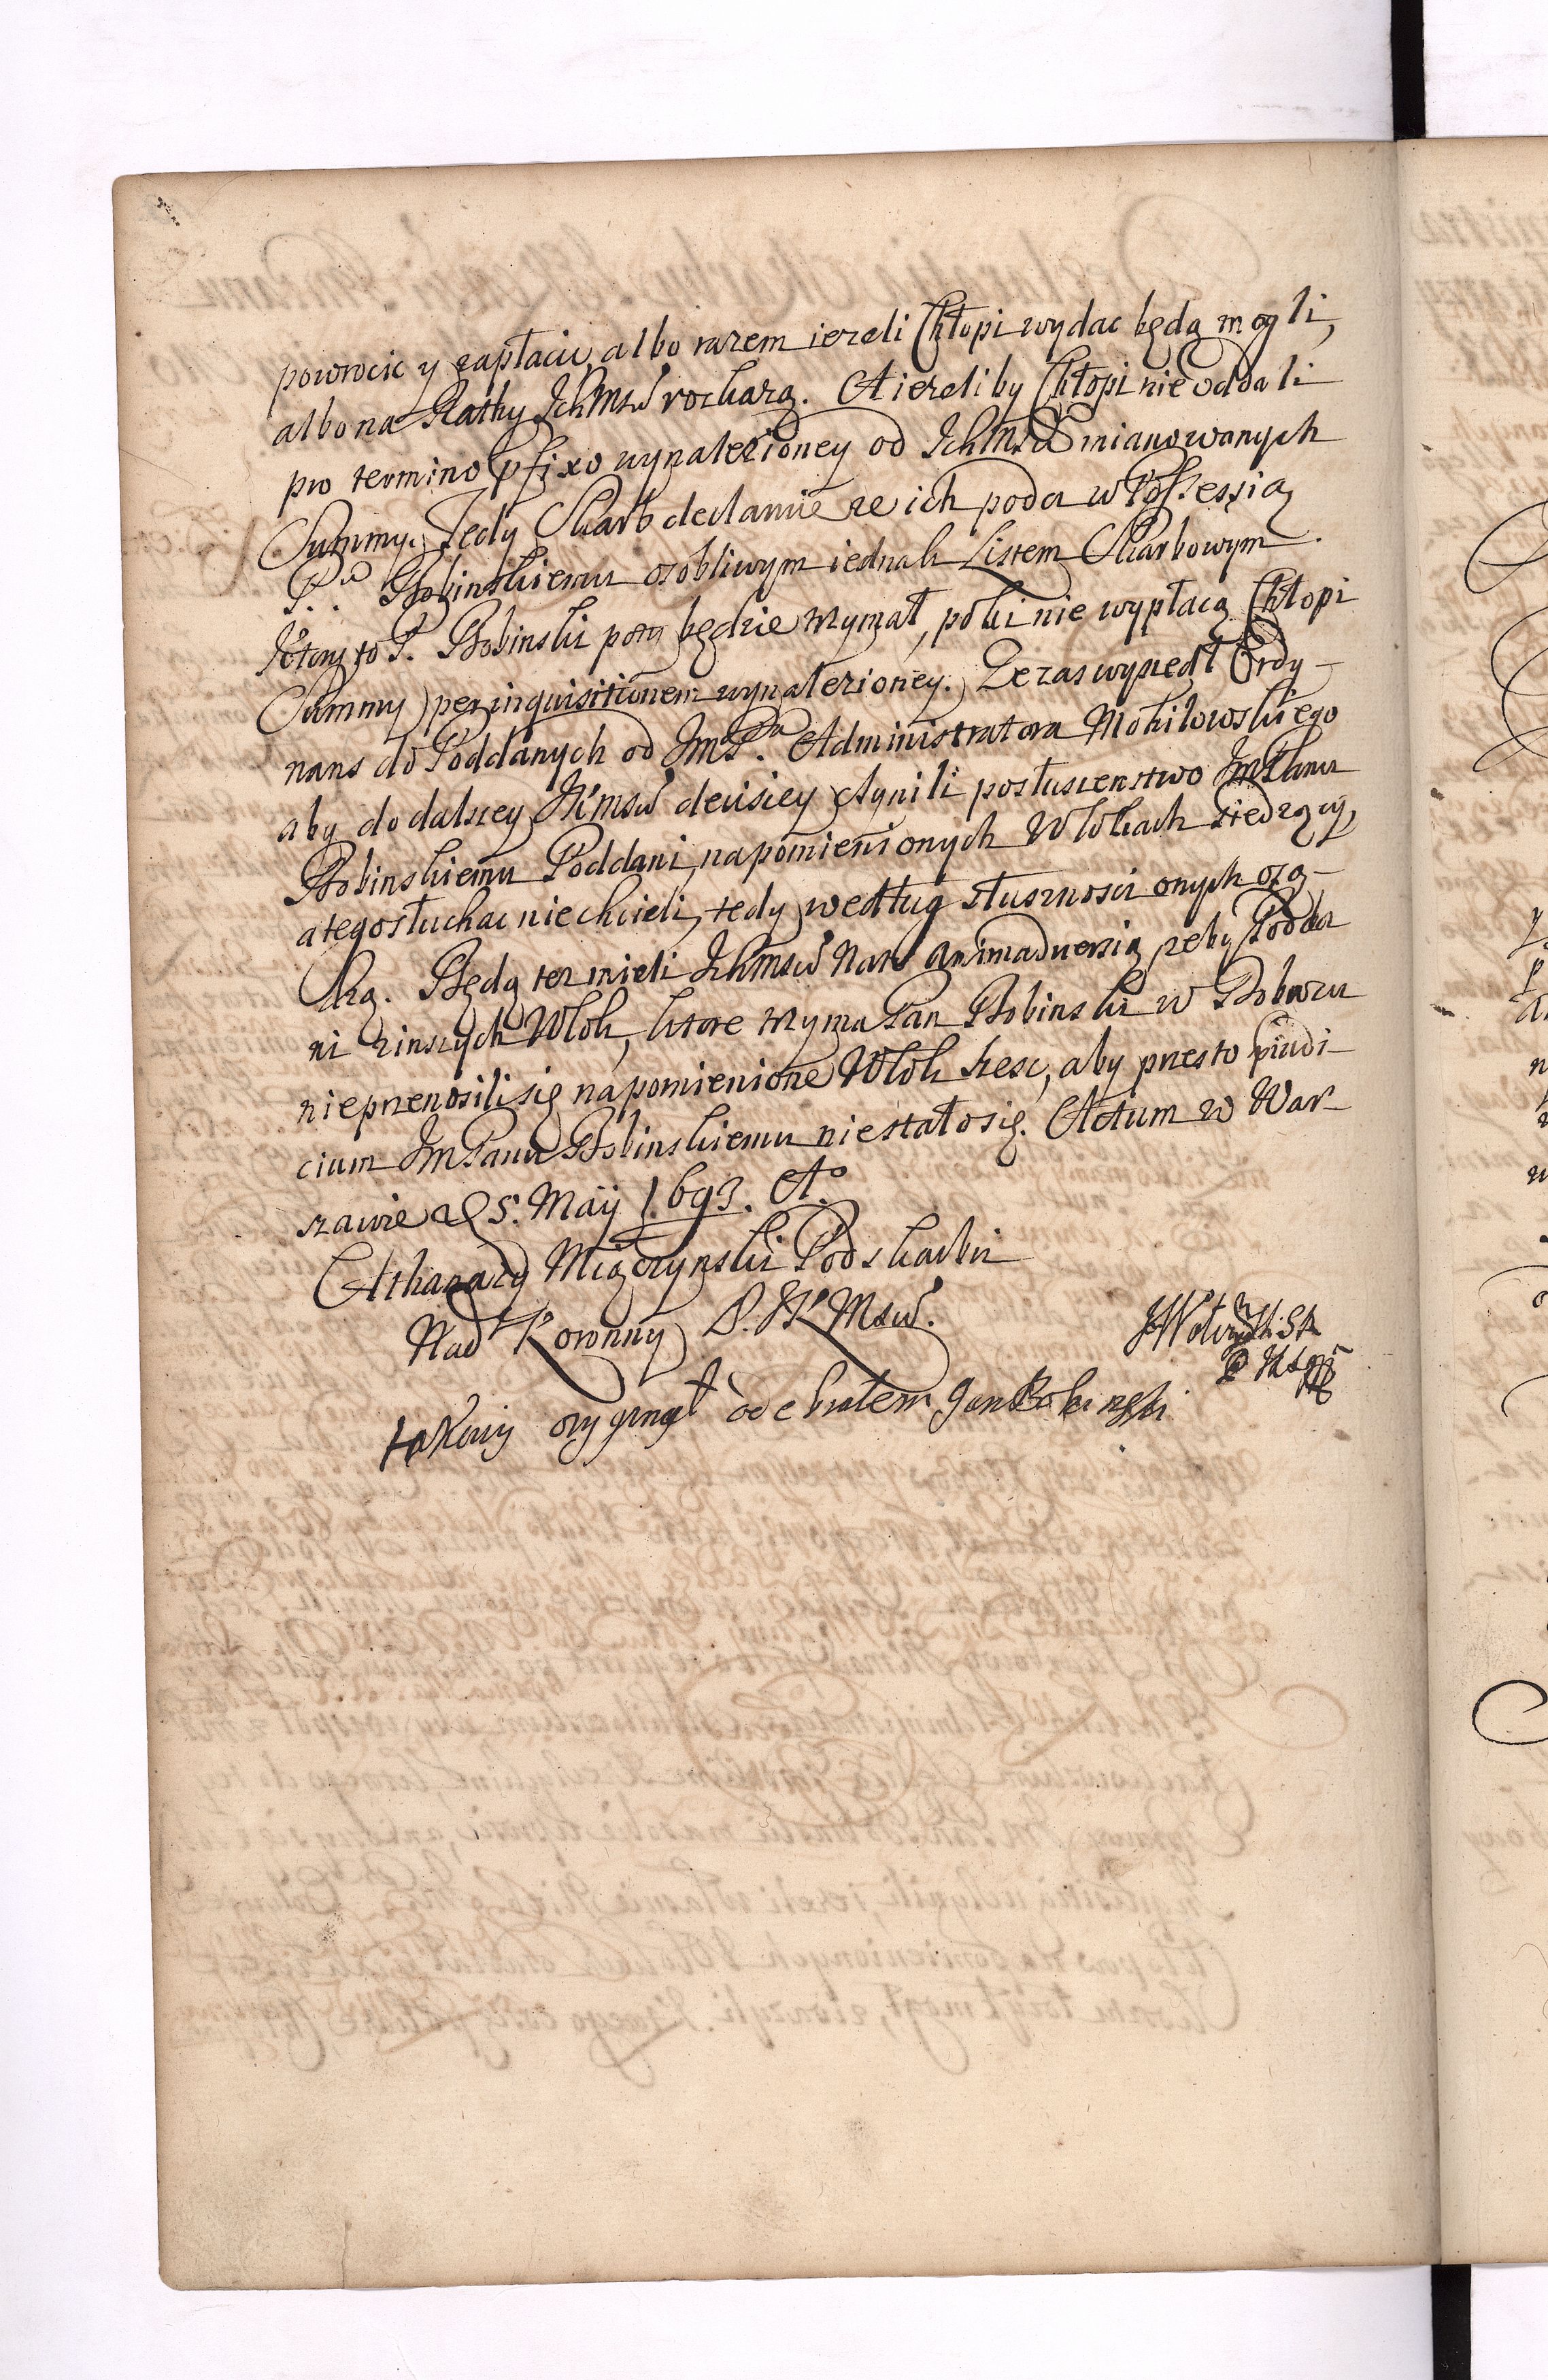 powrocic y zapłacic, albo razem iezeli Chłopi wydac będą mogli,
albo na Rathy Ichmsw rozkarzą. A iezeliby Chłopi nie oddali
pro termino pfixo wynalezioney od Ichmsw mianowanych
Summy. Tedy Skarb declaruie ze ich poda w Possessią
P. Bobinskiemu osobliwym iednak Listem Skarbowym.
Ktory to P. Bobinski poty będzie trzymał, poki nie wypłacą Chłopi
Summy per inquisitionem wynalezioney. Ze zas wyszedł Ordy-
nans do Poddanych od JmPna Administratora Mohilowskiego
aby do dalszey JKmsw decisiey czynili posłuszenstwo JmPanu
Bobinskiemu Poddani, na pomienionych Włokach siedzący,
a tego słuchac nie chcieli, tedy według słusznosci onych osą-
dzą. Będą tez mieli Ichmsw Nato animadversią zeby Podda
ni z inszych Włok, ktore trzyma Pan Bobinski w Bobrzu
nie przenosili się na pomienione Włok szesc, aby przez to piudi-
cium JmPanu Bobinskiemu nie stało się. Actum w War-
szawie d 5. Maÿ 1693. A.
Athanazy Miączynski Podskarbi
Nad Koronny S. JK Msw.
takowy orygynał odebrałem Jan Bobinski